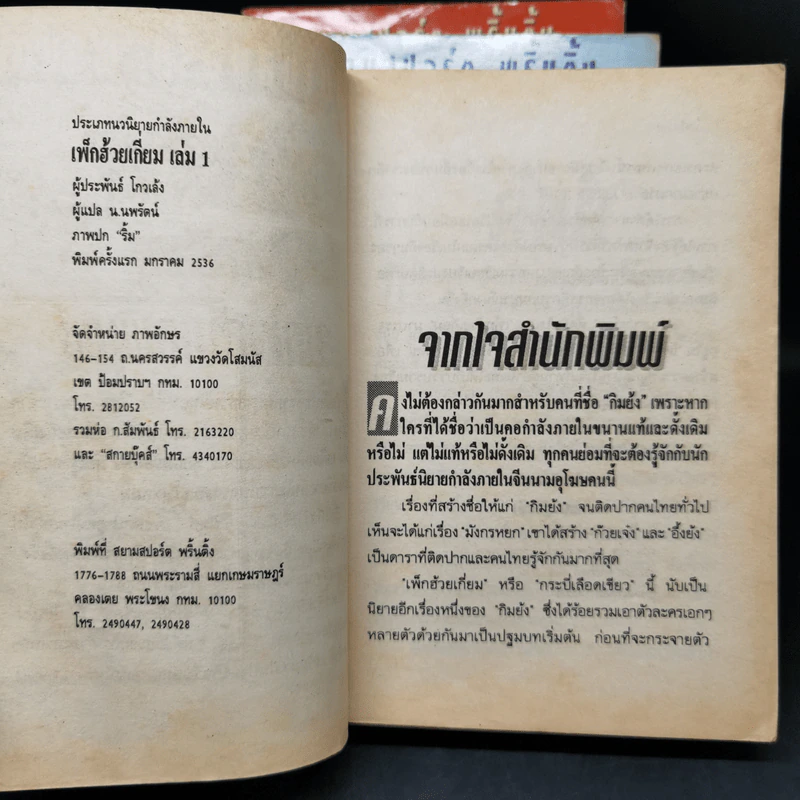 ประเภทนวนิยายกำลังภายใน
เพ็กฮ้วยเกี่ยม เล่ม 1
ผู้ประพันธ์ โกวเล้ง
ผู้แปล น.นพรัตน์
ภาพปก "ริ้ม"
พิมพ์ครั้งแรก มกราคม 2536
จัดจำหน่าย ภาพอักษร
146-154 ถ.นครสวรรค์ แขวงวัดโสมนัส
เขต ป้อมปราบฯ กทม. 10100
โทร. 2812052
รวมห่อ ก.สัมพันธ์ โทร. 2163220
และ "สกายบุ๊คส์" โทร. 4340170
พิมพ์ที่ สยามสปอร์ต พริ้นติ้ง
1776-1788 ถนนพระรามสี่ แยกเกษมราษฎร์
คลองเตย พระโขนง กทม. 10100
โทร. 2490447, 2490428
จากใจสำนักพิมพ์
คงไม่ต้องกล่าวกันมากสำหรับคนที่ชื่อ "กิมย้ง" เพราะหาก
ใครที่ได้ชื่อว่าเป็นคอกำลังภายในขนานแท้และดั้งเดิม
หรือไม่ แต่ไม่แท้หรือไม่ดั้งเดิม ทุกคนย่อมที่จะต้องรู้จักกับนัก
ประพันธ์นิยายกำลังภายในจีนนามอุโฆษคนนี้
เรื่องที่สร้างชื่อให้แก่ "กิมย้ง" จนติดปากคนไทยทั่วไป
เห็นจะได้แก่เรื่อง "มังกรหยก" เขาได้สร้าง "ก๊วยเจ๋ง" และ "อึ้งย้ง"
เป็นดาราที่ติดปากและคนไทยรู้จักกันมากที่สุด
"เพ็กฮ้วยเกี่ยม" หรือ "กระบี่เลือดเขียว" นี้ นับเป็น
นิยายอีกเรื่องหนึ่งของ "กิมย้ง" ซึ่งได้ร้อยรวมเอาตัวละครเอกๆ
หลายตัวด้วยกันมาเป็นปฐมบทเริ่มต้น ก่อนที่จะกระจายตัว